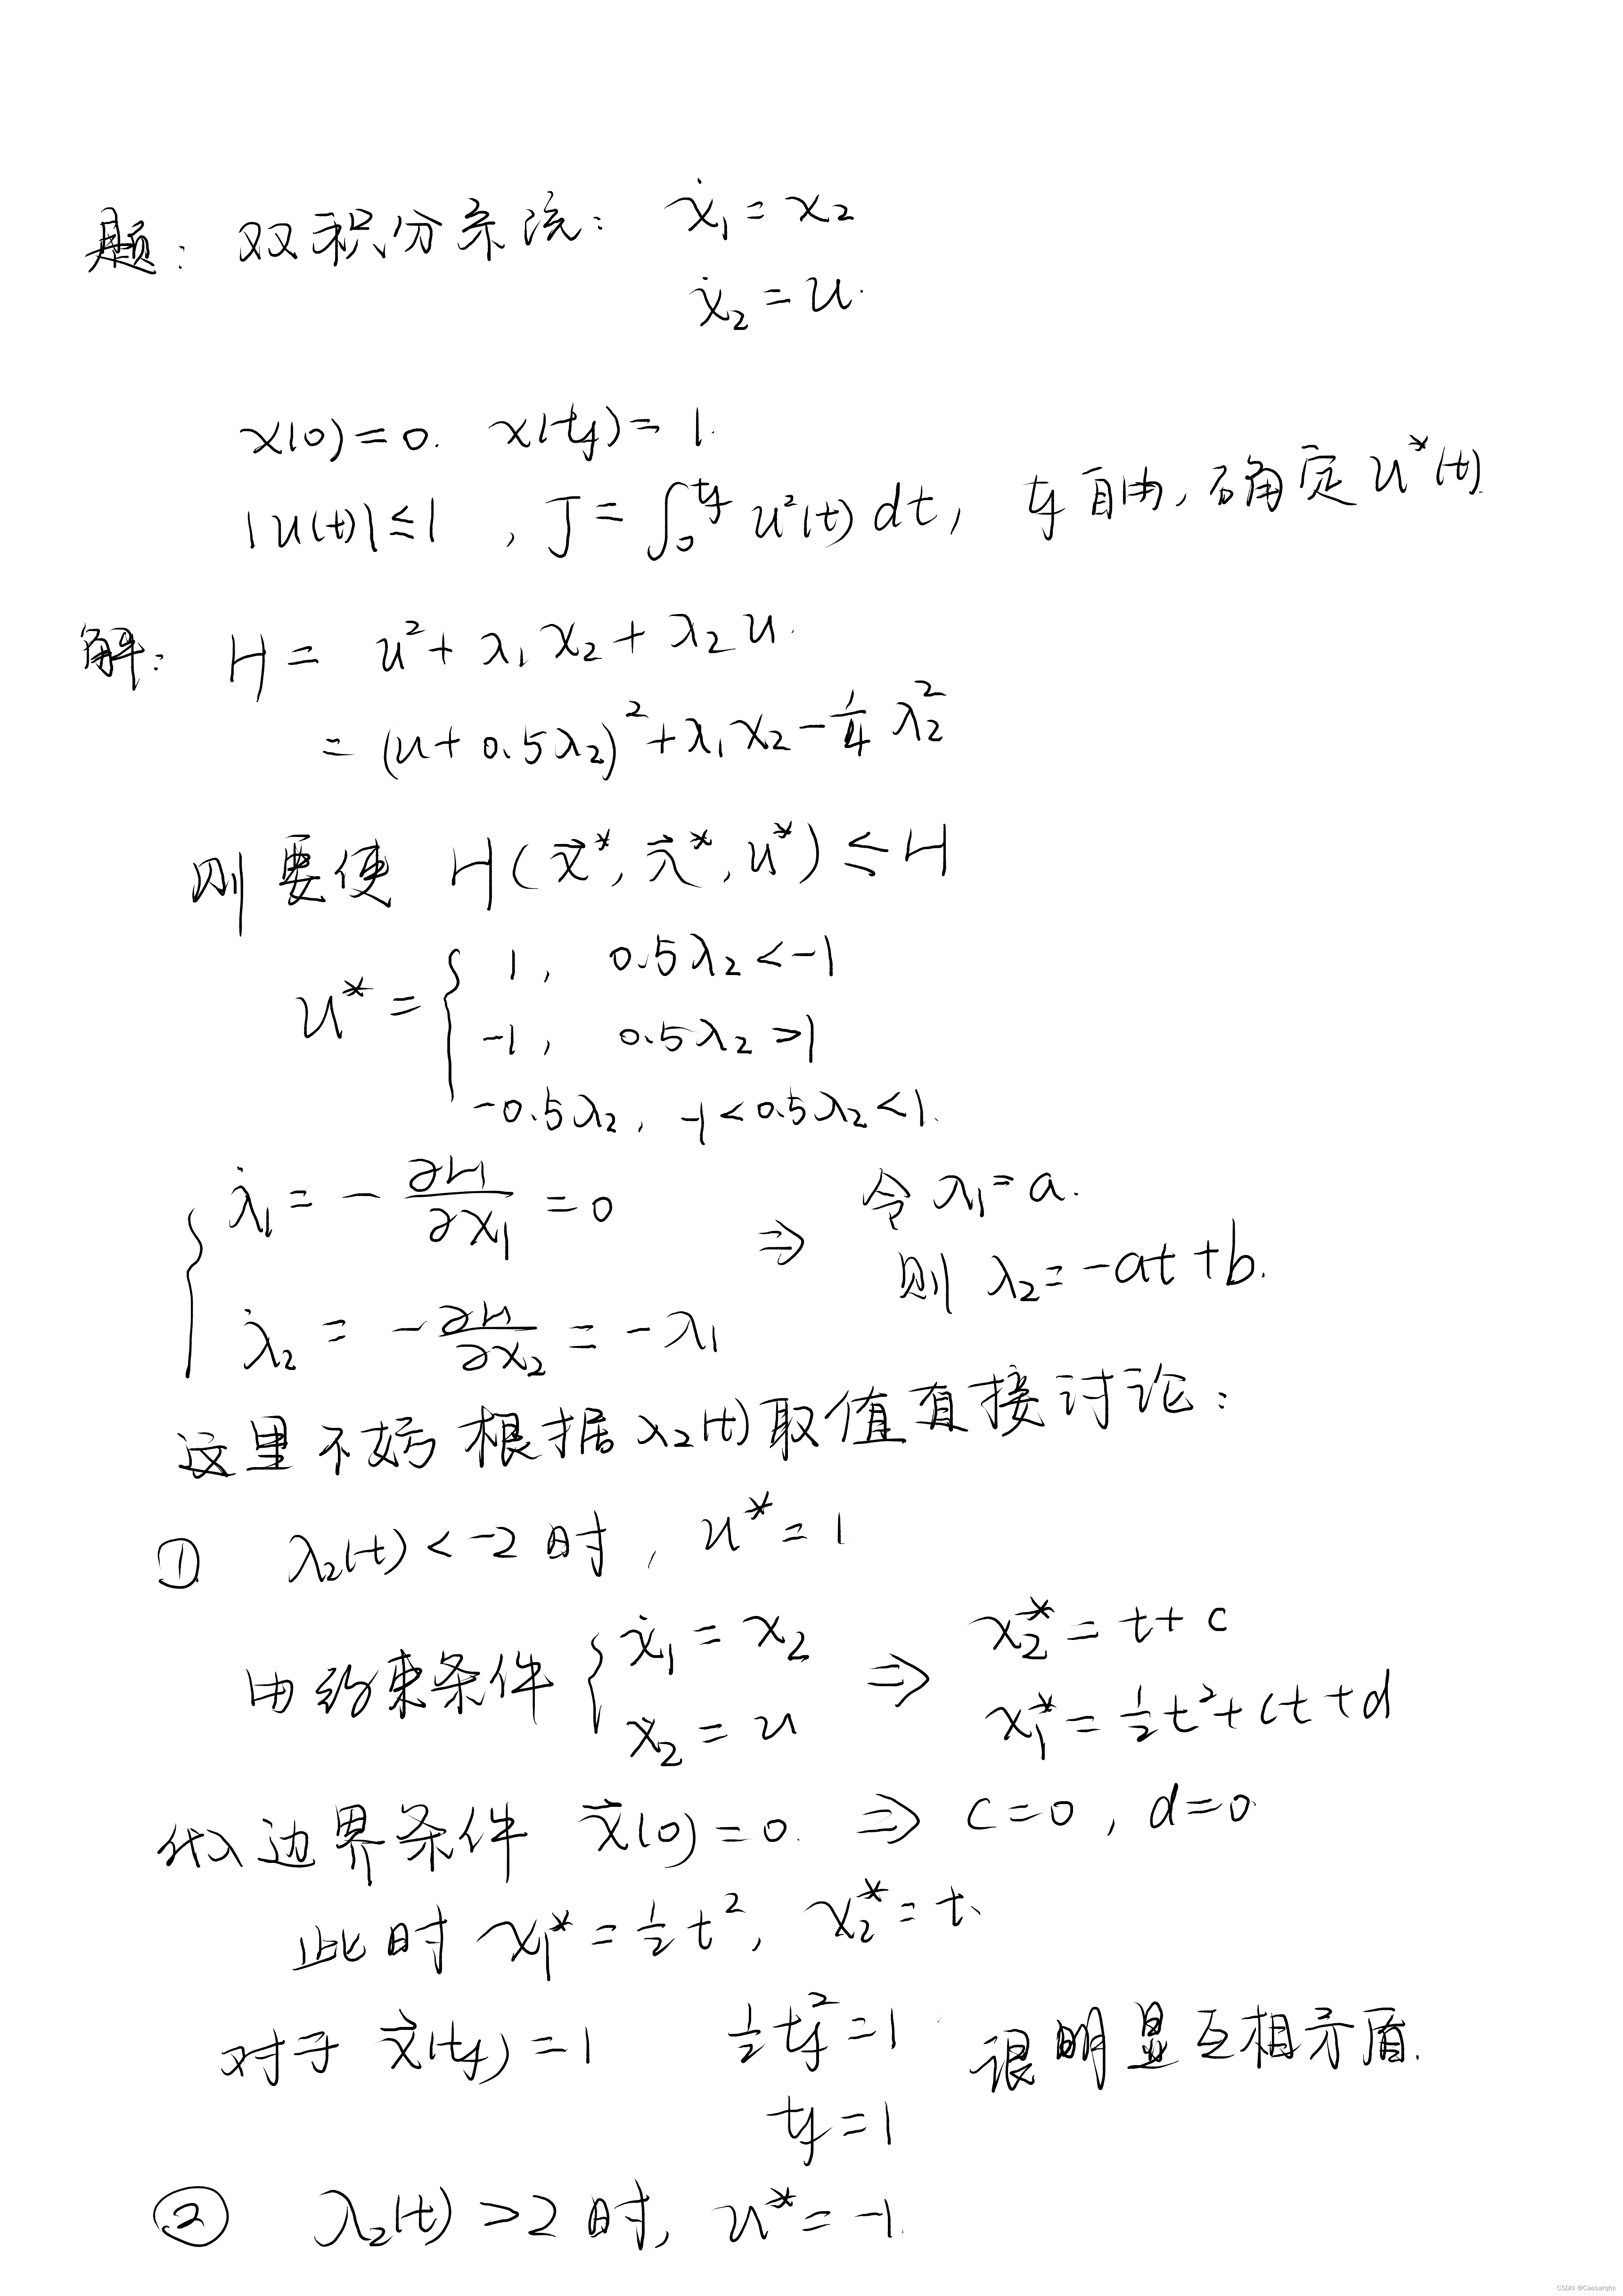 题: 双积分系统: ẋ₁ = x₂
ẋ₂ = u.
x(0) = 0. x(tf) = 1.
|u(t)| ≤ 1 , J = ∫₀^tf u²(t) dt, tf 自由, 确定 u*(t).
解: H = u² + λ₁x₂ + λ₂u.
= (u + 0.5λ₂)² + λ₁x₂ - ¼λ₂²
则要使 H(x⃗*, λ⃗*, u*) ≤ H
u* = { 1, 0.5λ₂ < -1
-1, 0.5λ₂ > 1
-0.5λ₂, -1 < 0.5λ₂ < 1.
{ λ̇₁ = - ∂H/∂x₁ = 0 ⇒ 令 λ₁ = a.
λ̇₂ = - ∂H/∂x₂ = -λ₁ 则 λ₂ = -at + b.
这里不妨根据 λ₂(t) 取值直接讨论:
① λ₂(t) < -2 时, u* = 1
由约束条件 { ẋ₁ = x₂ ⇒ x₂* = t + c
ẋ₂ = u x₁* = ½t² + ct + d
代入边界条件 x⃗(0) = 0. ⇒ c = 0, d = 0.
此时 x₁* = ½t², x₂* = t.
对于 x⃗(tf) = 1 ½tf² = 1 很明显互相矛盾.
tf = 1
② λ₂(t) > 2 时, u* = -1.
CSDN @Caesarqhs